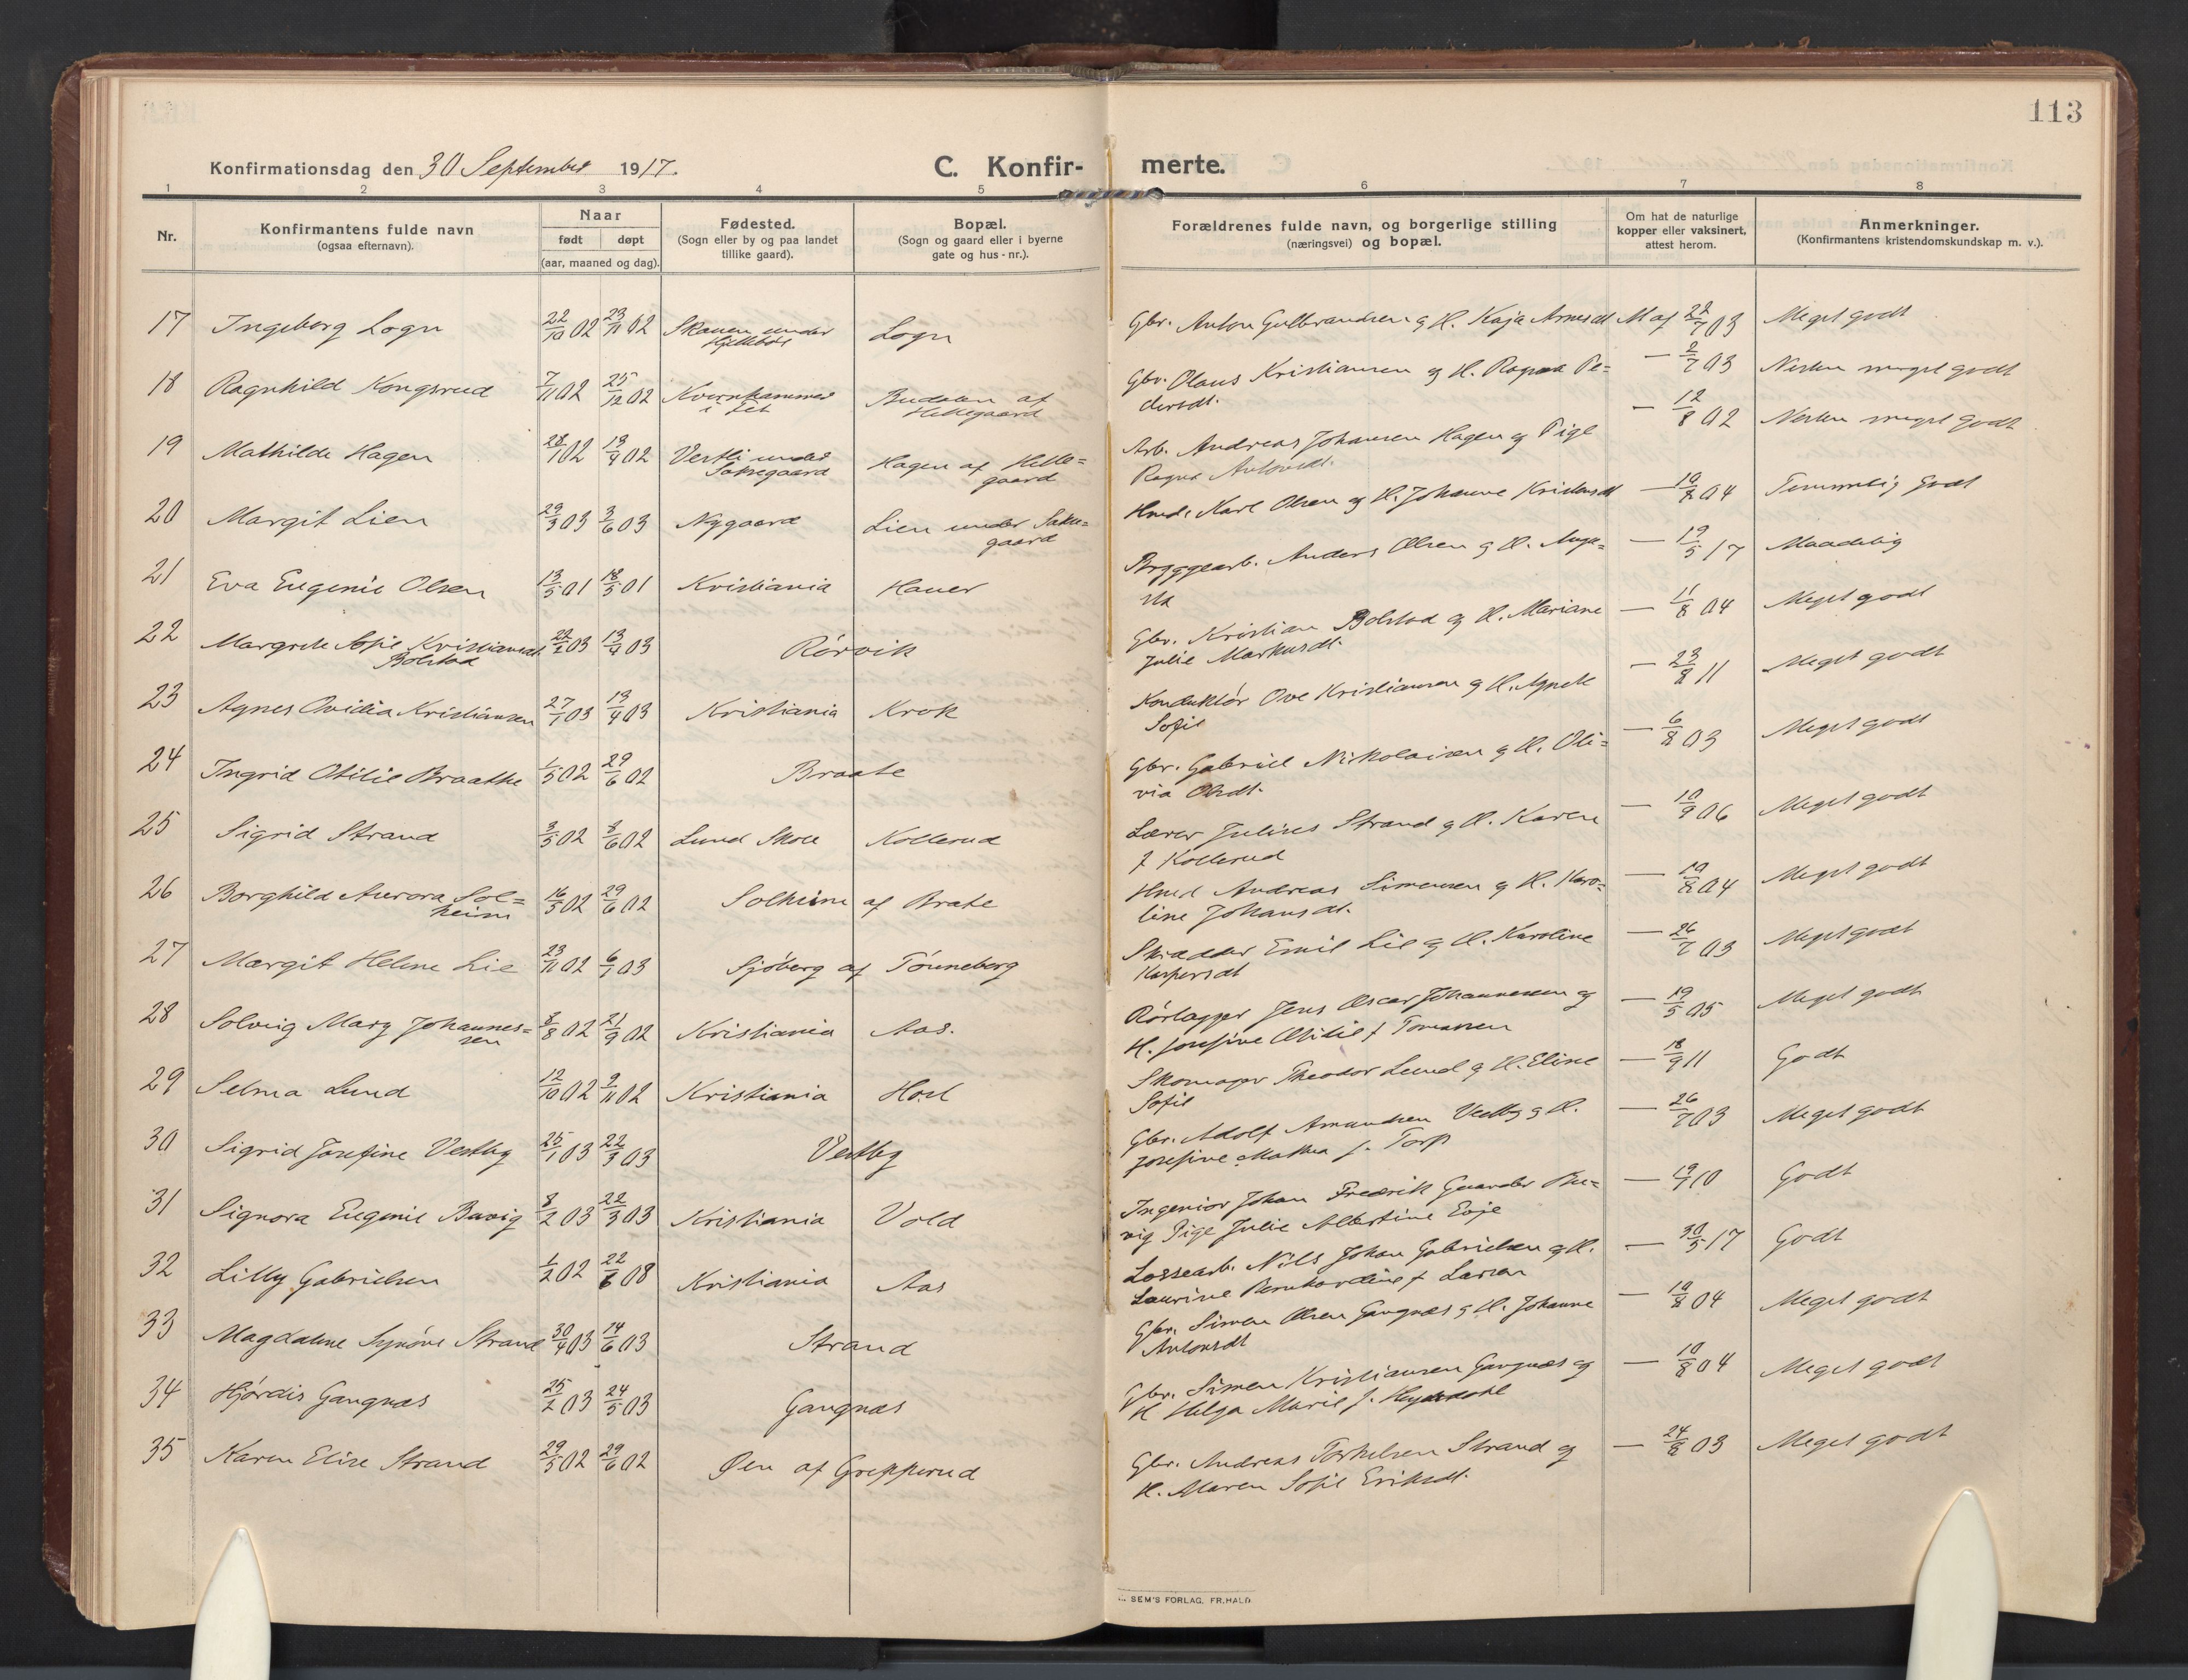 113
Konfirmationsdag den 30 September 1917.
C. Konfir-
merte.
1 2 3 4 5 6 7 8
Nr.
Konfirmantens fulde navn
(ogsaa efternavn).
Naar
født døpt
(aar, maaned og dag).
Fødested.
(Sogn eller by og paa landet
tillike gaard).
Bopæl.
(Sogn og gaard eller i byerne
gate og hus-nr.).
Forældrenes fulde navn, og borgerlige stilling
(næringsvei) og bopæl.
Om hat de naturlige
kopper eller vaksinert,
attest herom.
Anmerkninger.
(Konfirmantens kristendomskundskap m. v.).
17 Ingeborg Logn 22/10 02 23/11 02 Skauen under Logn Gbr. Anton Gulbrandsen og H. Kaja Arnesdt M af 22/7 03 Meget godt
18 Ragnhild Kongsrud 7/11 02 25/12 02 Kvernhammer Budalen af Gbr. Olaus Kristiansen og H. Ragna Pe= — 2/7 03 Nesten meget godt
Hellegaard
dersdt.
19 Mathilde Hagen 28/1 02 13/4 02 Vestli under Hagen af Helle= Arb. Andreas Johansen Hagen og Pige — 12/8 02 Nesten meget godt
Saksegaard gaard Ragna Antonsdt.
20 Margit Lien 29/3 03 3/6 03 Nygaard Lien under Sakse= Hmd. Karl Olsen og H. Johanne Kristensdt — 10/8 04 Temmelig godt
gaard
21 Eva Eugenie Olsen 13/5 01 18/5 01 Kristiania Hauer Bryggearb. Anders Olsen og H. Augu= — 19/5 17 Maadelig
sta
22 Margrete Sofie Kristiansdt. 22/2 03 13/4 03 Rørvik Gbr. Kristian Bolstad og H. Mariane — 11/8 04 Meget godt
Bolstad Julie Markusdt.
23 Agnes Ovidia Kristiansen 27/1 03 13/4 03 Kristiania Krok Konduktør Ove Kristiansen og H. Agnete — 23/8 11 Meget godt
Sofie
24 Ingrid Otilie Braathe 1/5 02 29/6 02 Braate Gbr. Gabriel Nikolaisen og H. Oli= — 6/8 03 Meget godt
via Olsdt.
25 Sigrid Strand 3/5 02 8/6 02 Lund Skole Kollerud Lærer Julius Strand og H. Karen — 10/9 06 Meget godt
f Kollerud
26 Borghild Aurora Sol= 16/5 02 29/6 02 Solheim af Brate Hmd Andreas Simensen og H. Karo= — 10/8 04 Meget godt
heim line Johansdt.
27 Margit Helene Lie 23/11 02 6/1 03 Sjøberg af Tønneberg Skrædder Emil Lie og H. Karoline — 26/7 03 Meget godt
Kaspersdt
28 Solveig Mary Johannes= 8/8 02 21/9 02 Kristiania Aas. Rørlægger Jens Oscar Johannessen og — 19/5 05 Meget godt
sen H. Josefine Otilie f Tomassen
29 Selma Lund 12/10 02 9/11 02 Kristiania Hoel Skomager Theodor Lund og H. Eline — 18/9 11 Godt
Sofie
30 Sigrid Josefine Vestby 25/1 03 22/3 03 Vestby Gbr. Adolf Amundsen Vestby og H. — 26/7 03 Meget godt
Josefine Mathea f. Torp
31 Signora Eugenie Buvig 8/2 03 22/3 03 Kristiania Vold Ingeniør Johan Fredrik Bu= — 10 Godt
vig Pige Julie Albertine Evje
32 Lilly Gabrielsen 1/2 02 22/6 08 Kristiania Aas Lossearb. Nils Johan Gabrielsen og H. — 30/5 17 Godt
Laurine Bernhardine f Larsen
33 Magdalene Synøve Strand 30/4 03 14/6 03 Strand Gbr. Simen Olsen Gangnæs og H. Johanne — 10/8 04 Meget godt
Antonsdt
34 Hjørdis Gangnæs 25/2 03 24/5 03 Gangnæs Gbr. Simen Kristiansen Gangnæs og — 10/8 04 Meget godt
H Helga Marie f.
35 Karen Elise Strand 29/5 02 29/6 02 Øen af Grepperud Gbr. Andreas Torkelsen Strand og — 24/8 03 Meget godt
H. Maren Sofie Eriksdt.
SEM'S FORLAG, FR.HALD